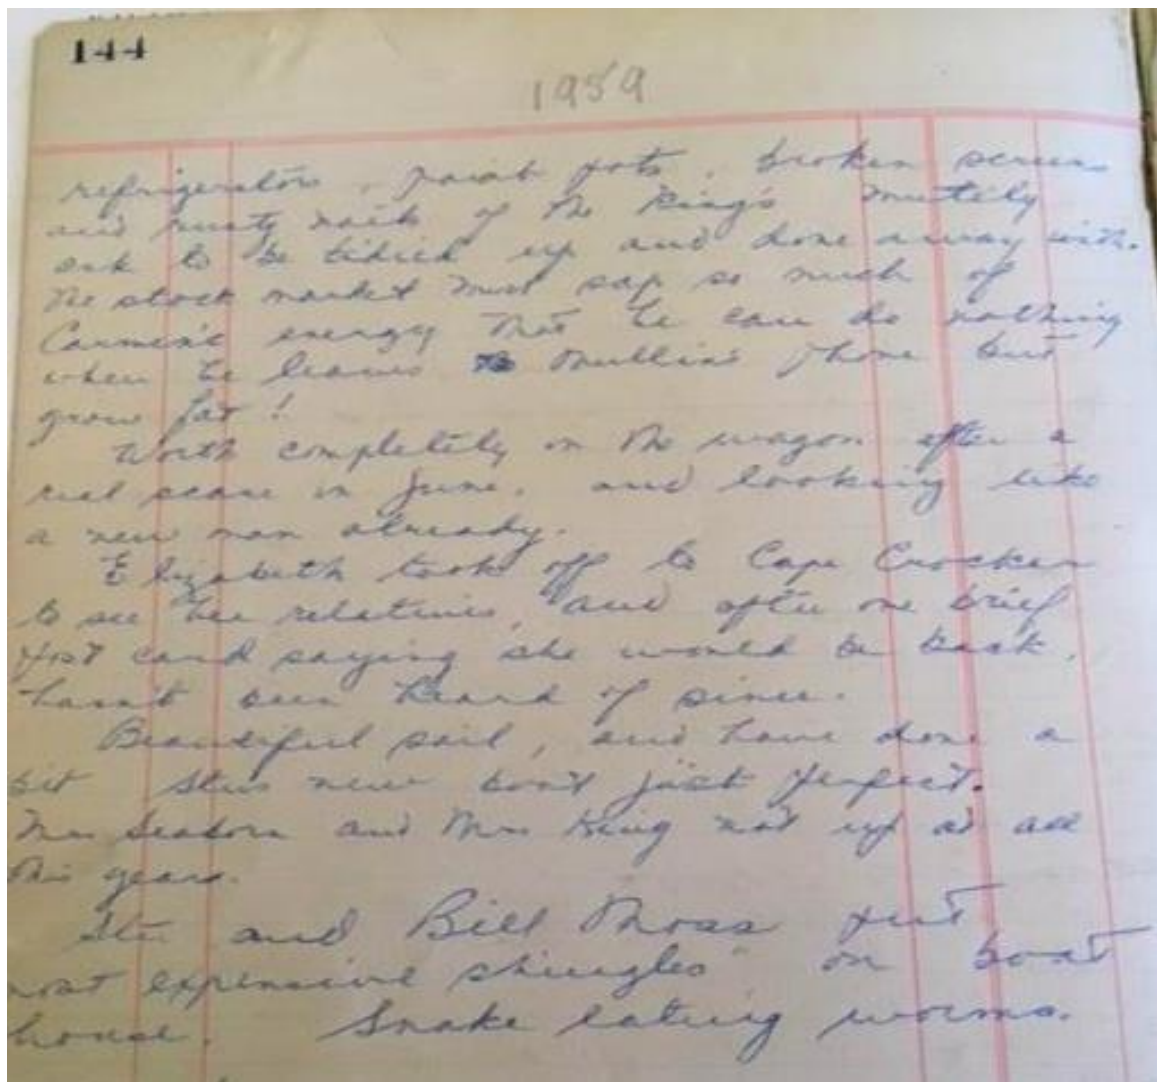 144
1959
refrigerators, paint pots, broken screens
and rusty nails of the King's mutely
ask to be tidied up and done away with.
The stock market must sap so much of
Carmen's energy that he can do nothing
when he leaves Mullin's phone but
grow fat!
Worth completely on the wagon after a
real scare in June, and looking like
a new man already.
Elizabeth took off to Cape Crocker
to see her relatives, and after one brief
post card saying she would be back,
hasn't been heard of since.
Beautiful sail, and have done a
bit Stu's new boat just perfect.
Mrs and Mrs King not up at all
this year.
Stu and Bill Moss put
most expensive shingles on boat
house. Snake eating worms.